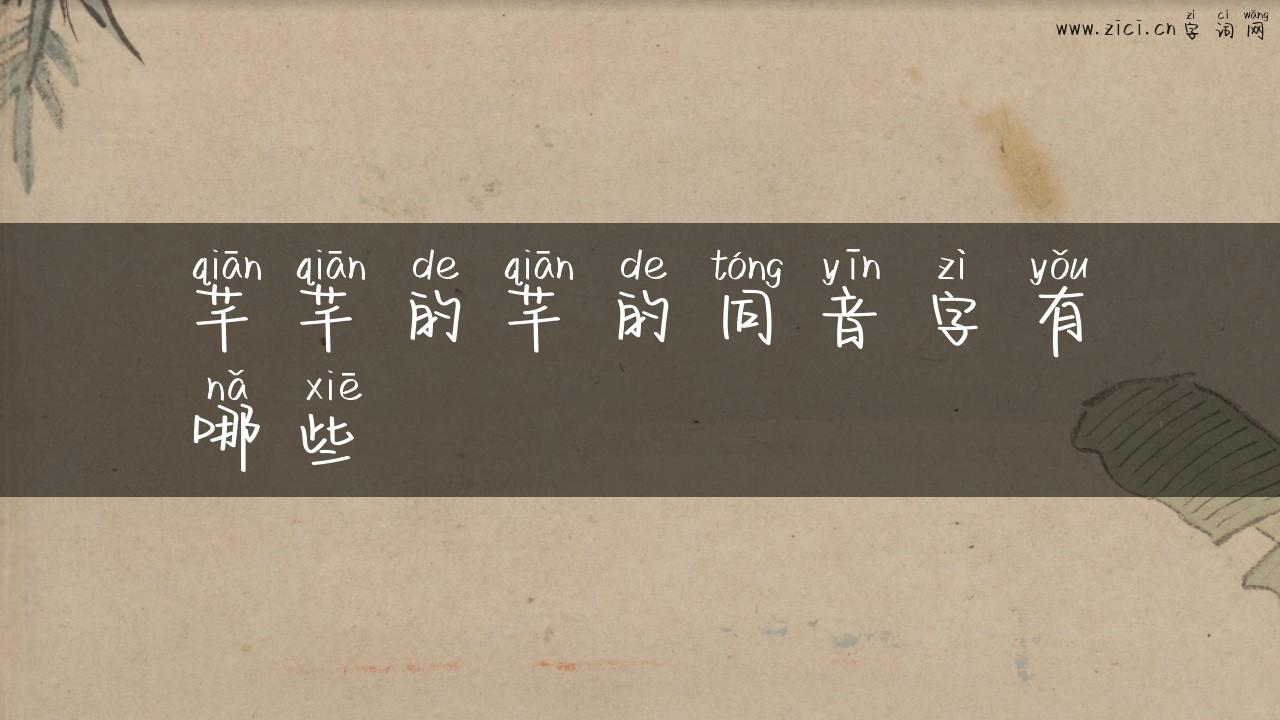 zì cí wǎng
www.zici.cn 字词网
qiān qiān de qiān de tóng yīn zì yǒu
芊芊的芊的同音字有
nǎ xiē
哪些